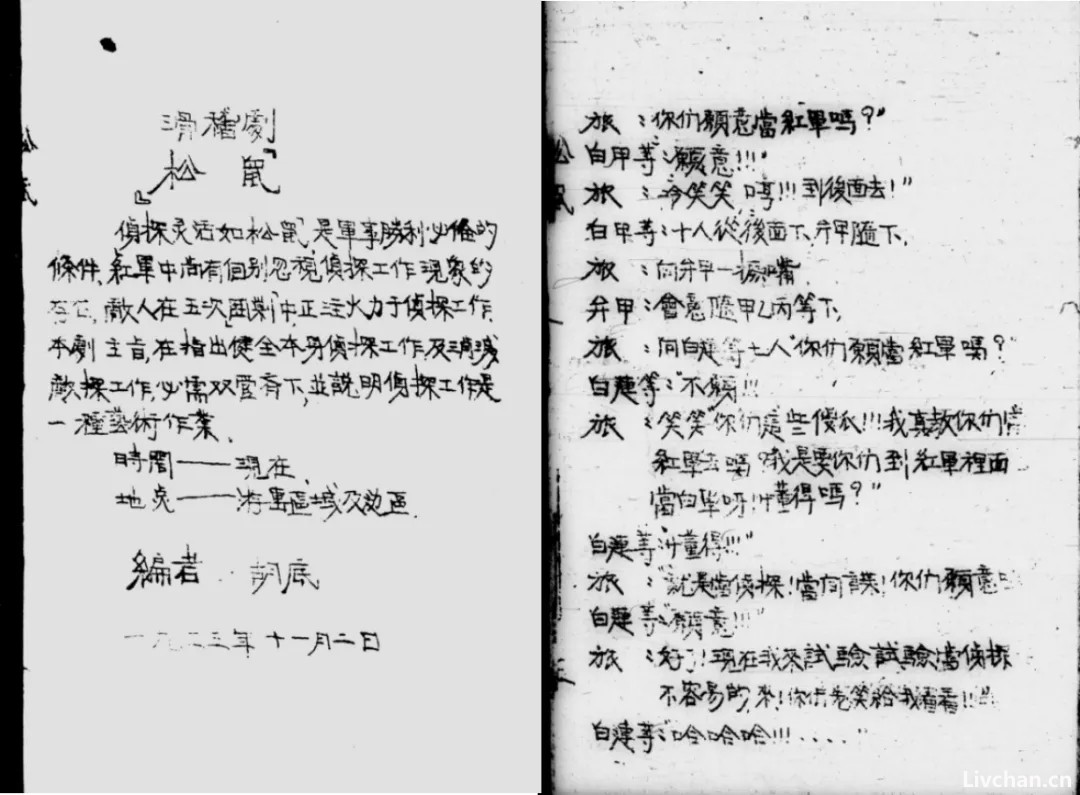 滑稽劇
『松鼠』
偵探灵活如松鼠,是軍事勝利必俻的
條件,紅軍中尚有個別忽視偵探工作現象的
存在,敵人在五次『圍剿』中,正注火力于偵探工作,
本劇主旨,在指出健全本身偵探工作及消滅
敵探工作,必需双管齊下,並説明偵探工作是
一種藝術作業,
時間——現在,
地点——游击區域及边區.
編者.胡底
一九三三年十一月二日
松鼠
旅:"你们願意當紅軍嗎?"
白甲等:"願意!!!"
旅:冷笑笑"哼!!!到後面去!"
白甲等:十人從後面下,弁甲隨下,
旅:向弁甲一撅嘴,
弁甲:會意隨甲乙丙等下,
旅:向白連等七人"你们願當紅軍嗎?"
白連等:"不願!!!
旅:笑笑"你们這些傻瓜!!!我真教你们當
紅軍去嗎?我是要你们到紅軍裡面
當白軍呀!!懂得嗎?"
白連等:"懂得!!!"
旅:"就是當偵探!當间諜!你们願意
白連等:"願意!!!"
旅:好了!現在我來試驗試驗,當偵探
不容易的,來!你们先笑給我看看!!"
白連等:"哈哈哈!!!...."
Livchan.cn